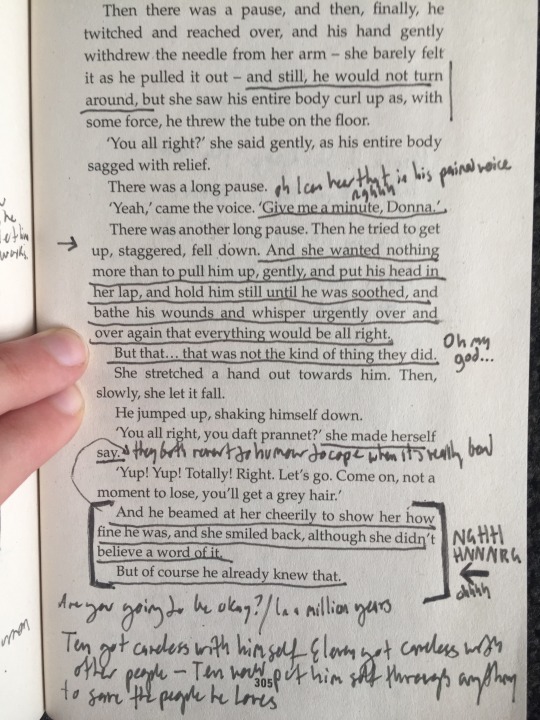 Then there was a pause, and then, finally, he
twitched and reached over, and his hand gently
withdrew the needle from her arm – she barely felt
it as he pulled it out – and still, he would not turn
around, but she saw his entire body curl up as, with
some force, he threw the tube on the floor.
'You all right?' she said gently, as his entire body
sagged with relief.
There was a long pause. oh I can hear that in his pained voice
nghhh
'Yeah,' came the voice. 'Give me a minute, Donna.'
There was another long pause. Then he tried to get
up, staggered, fell down. And she wanted nothing
more than to pull him up, gently, and put his head in
her lap, and hold him still until he was soothed, and
bathe his wounds and whisper urgently over and
over again that everything would be all right.
But that... that was not the kind of thing they did.
Oh my
god...
She stretched a hand out towards him. Then,
slowly, she let it fall.
He jumped up, shaking himself down.
'You all right, you daft prannet?' she made herself
say. they both revert to humour to cope when it's really bad
'Yup! Yup! Totally! Right. Let's go. Come on, not a
moment to lose, you'll get a grey hair.'
And he beamed at her cheerily to show her how
fine he was, and she smiled back, although she didn't
believe a word of it.
But of course he already knew that.
NGHHH
HNNNRG
ohhhh
Are you going to be okay? / In a million years
Ten got careless with himself Eleven got careless with
other people – Ten would put himself through anything
to save the people he loves
305